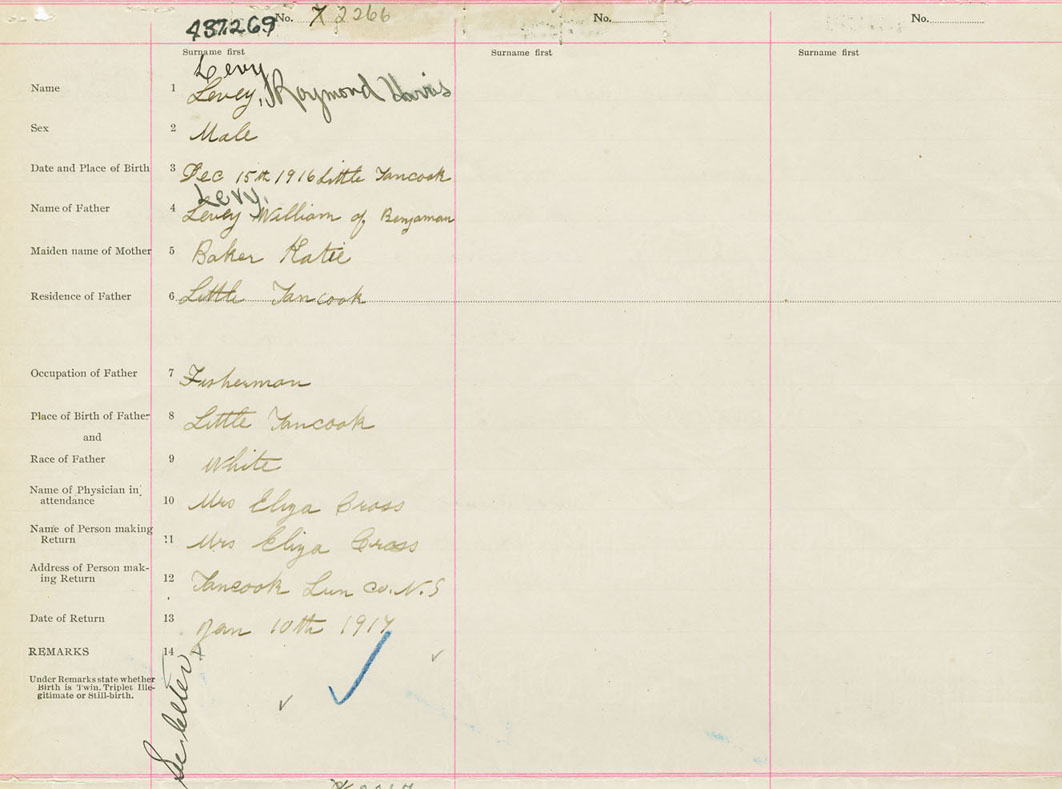 437269 No. X 2266 No. No.
Surname first Surname first Surname first
Levy
Name 1 Levey, Raymond Harris
Sex 2 Male
Date and Place of Birth 3 Dec 15th 1916 Little Tancook
Levy,
Name of Father 4 Levey William of Benjaman
Maiden name of Mother 5 Baker Katie
Residence of Father 6 Little Tancook
Occupation of Father 7 Fisherman
Place of Birth of Father 8 Little Tancook
and
Race of Father 9 White
Name of Physician in
attendance 10 Mrs Eliza Cross
Name of Person making
Return 11 Mrs Eliza Cross
Address of Person mak-
ing Return 12 Tancook Lun Co. N.S
Date of Return 13 Jan 10th 1917
REMARKS 14
Under Remarks state whether
Birth is Twin, Triplet Ille-
gitimate or Still-birth.